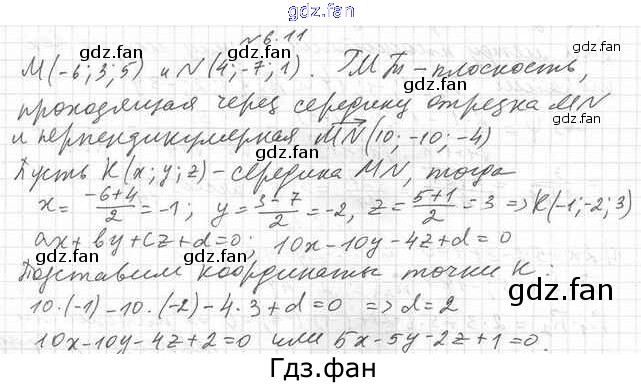 gdz.fan
№6.11
gdz.fan gdz.fan
M(-6; 3; 5) и N(4; -7; 1). ГМТ - плоскость,
проходящая через середину отрезка MN
и перпендикулярная MN(10; -10; -4)
gdz.fan gdz.fan
Пусть K(x; y; z) - середина MN, тогда
x = (-6+4)/2 = -1; y = (3-7)/2 = -2, z = (5+1)/2 = 3 => K(-1; -2; 3)
ax+by+cz+d=0; 10x-10y-4z+d=0
gdz.fan
Подставим координаты точки K:
gdz.fan
10·(-1)-10·(-2)-4·3+d=0 => d=2
10x-10y-4z+2=0 или 5x-5y-2z+1=0.
gdz.fan
Гдз.фан